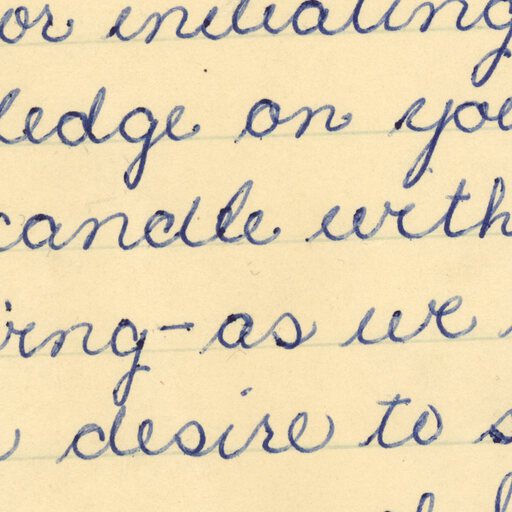 or initiating
ledge on you
candle with
ring - as we
desire to s